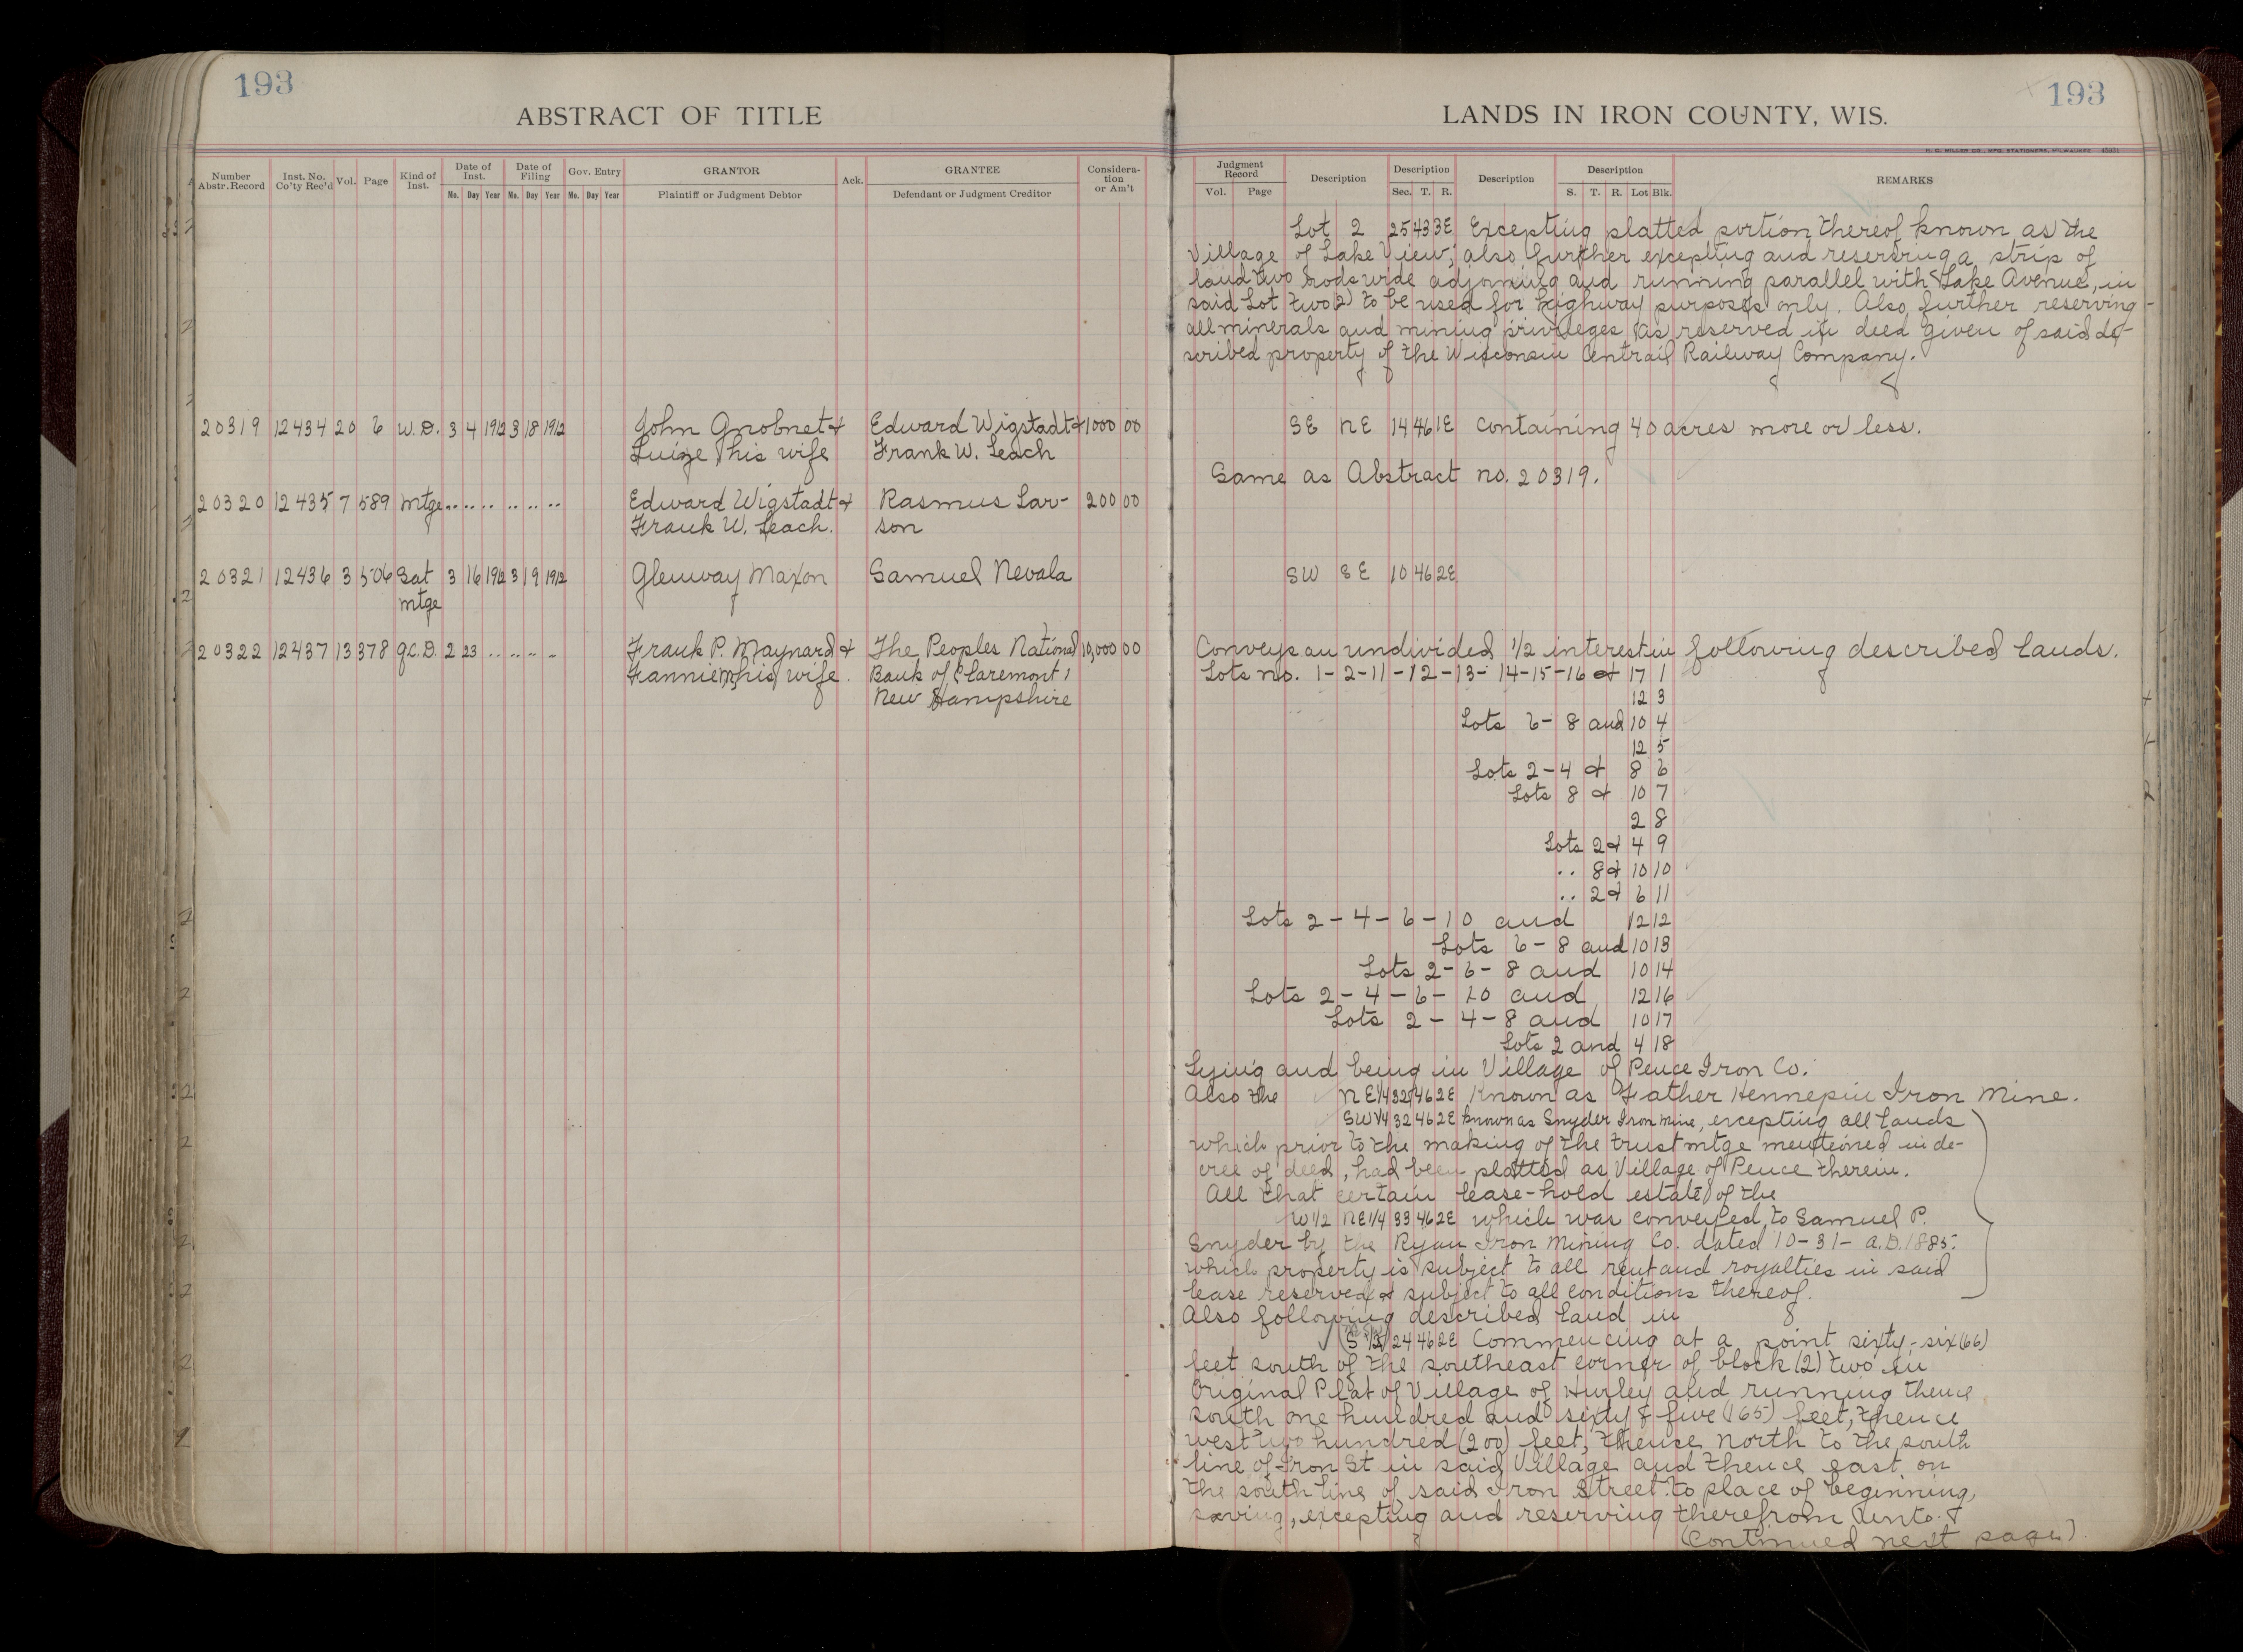 193
ABSTRACT OF TITLE
Number Abstr. Record
Inst. No. Co'ty Rec'd
Vol.
Page
Kind of Inst.
Date of Inst.
Mo. Day Year
Date of Filing
Mo. Day Year
Gov. Entry
Mo. Day Year
GRANTOR
Plaintiff or Judgment Debtor
Ack.
GRANTEE
Defendant or Judgment Creditor
Considera-tion or Am't
20319 12434 20 6 W.D. 3 4 1912 3 18 1912 John Gnobnet & Edward Wigstadt & 1000 00
Luize, his wife Frank W. Leach
20320 12435 7 589 Mtge .. .. .. .. .. .. Edward Wigstadt & Rasmus Lar- 200 00
Frank W. Leach. son
20321 12436 3 506 Sat 3 16 1912 3 19 1912 Glenway Maxon Samuel Nevala
mtge
20322 12437 13 378 Q.C.D. 2 23 .. .. .. .. Frank P. Maynard & The Peoples National 10,000 00
Fannie M, his wife. Bank of Claremont,
New Hampshire
193
LANDS IN IRON COUNTY, WIS.
H. G. MILLER CO., MFG. STATIONERS, MILWAUKEE
Judgment Record
Vol. Page
Description
Description
Sec. T. R.
Description
Description
S. T. R. Lot Blk.
REMARKS
Lot 2 25 43 3E Excepting platted portion thereof known as the
Village of Lake View; also further excepting and reserving a strip of
land two rods wide adjoining and running parallel with Lake Avenue, in
said Lot two (2) to be used for highway purposes only. Also further reserving
all minerals and mining privileges as reserved in deed given of said de-
scribed property of the Wisconsin Central Railway Company.
SE NE 14 46 1E containing 40 acres more or less.
Same as Abstract no. 20319.
SW SE 10 46 2E
Conveys an undivided 1/2 interest in following described lands.
Lots no. 1-2-11-12-13-14-15-16 & 17 1
12 3
Lots 6-8 and 10 4
12 5
Lots 2-4 & 8 6
Lots 8 & 10 7
2 8
Lots 2 & 4 9
.. 8 & 10 10
.. 2 & 6 11
Lots 2-4-6-10 and 12 12
Lots 6-8 and 10 13
Lots 2-6-8 and 10 14
Lots 2-4-6-10 and 12 16
Lots 2-4-8 and 10 17
Lots 2 and 4 18
Lying and being in Village of Pence Iron Co.
Also the NE1/4 32 46 2E Known as Father Hennepin Iron Mine.
SW1/4 32 46 2E known as Snyder Iron Mine, excepting all lands
which prior to the making of the trust mtge mentioned in de-
cree of deed, had been platted as Village of Pence therein.
All that certain lease-hold estate of the
W1/2 NE1/4 33 46 2E which was conveyed to Samuel P.
Snyder by the Ryan Iron Mining Co. dated 10-31- A.D. 1885.
which property is subject to all rent and royalties in said
lease reserved & subject to all conditions thereof.
Also following described land in
S 1/2 24 46 2E Commencing at a point sixty-six (66)
feet south of the southeast corner of block (2) two in
Original Plat of Village of Hurley and running thence
south one hundred and sixty & five (165) feet, thence
west two hundred (200) feet, thence North to the south
line of Iron St in said Village and thence east on
the south line of said Iron Street to place of beginning,
saving, excepting and reserving therefrom unto &
(Continued next page)